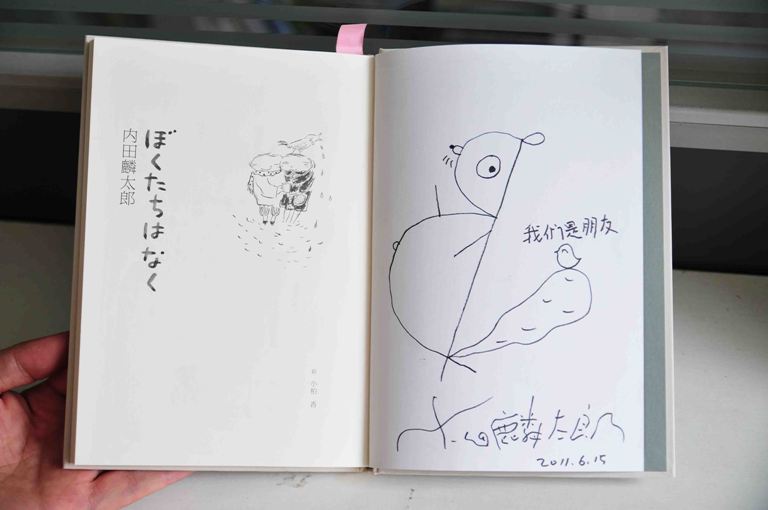 ぼくたちはなく
内田麟太郎
絵 小柏 香
我们是朋友
内田麟太郎
2011.6.15